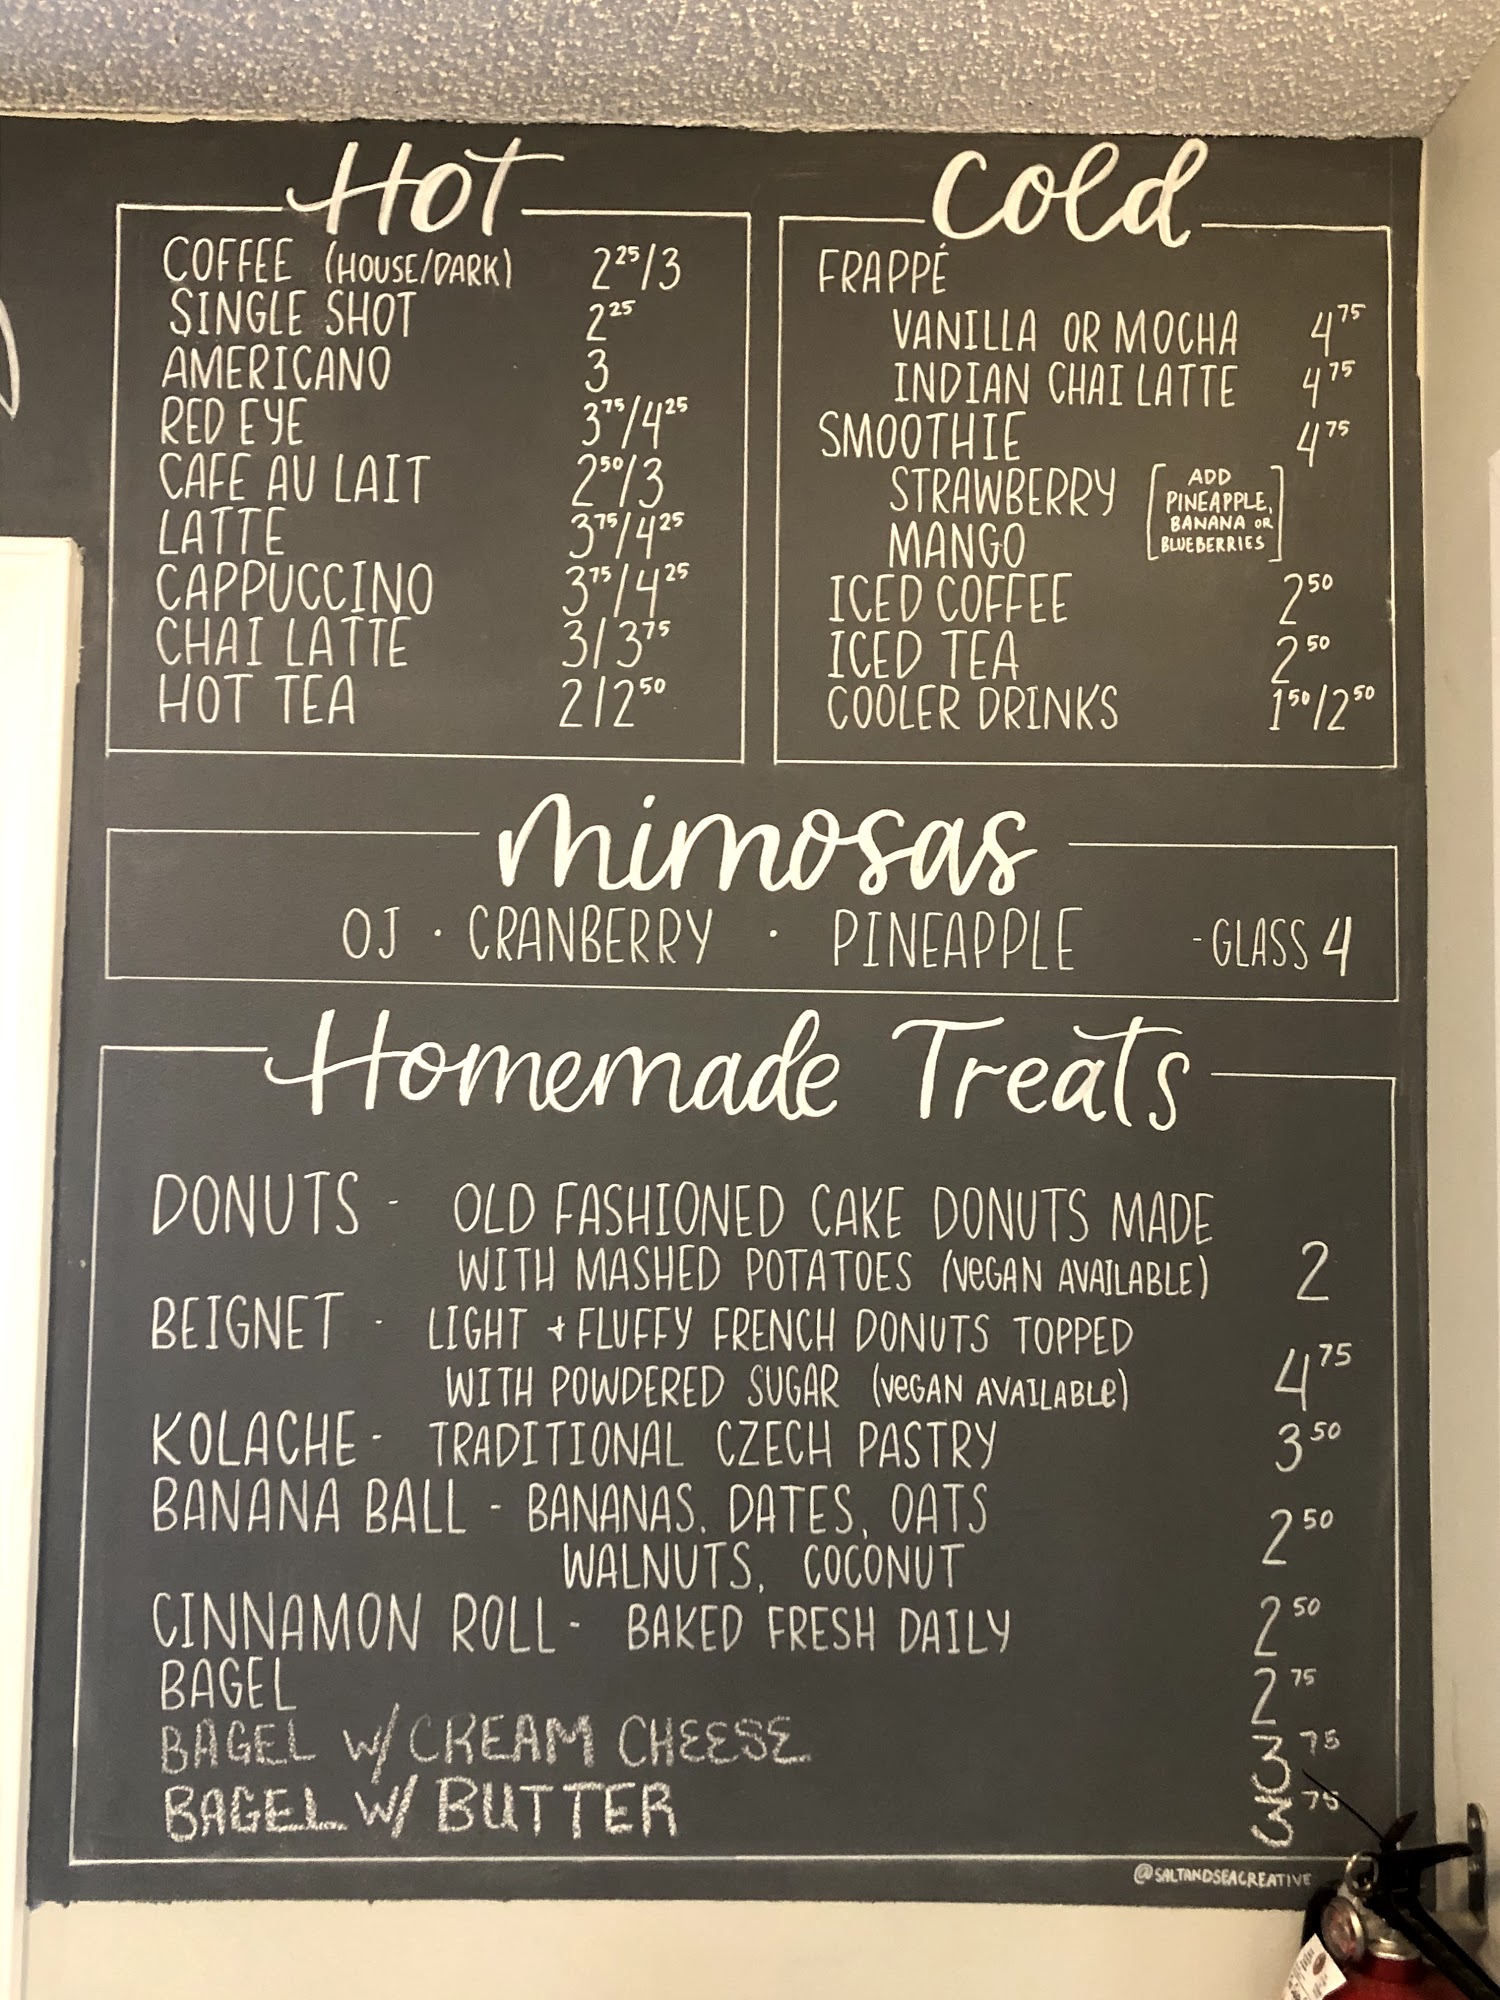 Hot
COFFEE (HOUSE/DARK) 2²⁵/3
SINGLE SHOT 2²⁵
AMERICANO 3
RED EYE 3⁷⁵/4²⁵
CAFE AU LAIT 2⁵⁰/3
LATTE 3⁷⁵/4²⁵
CAPPUCCINO 3⁷⁵/4²⁵
CHAI LATTE 3/3⁷⁵
HOT TEA 2/2⁵⁰
Cold
FRAPPÉ
VANILLA OR MOCHA 4⁷⁵
INDIAN CHAI LATTE 4⁷⁵
SMOOTHIE 4⁷⁵
STRAWBERRY
MANGO
[ADD
PINEAPPLE,
BANANA OR
BLUEBERRIES]
ICED COFFEE 2⁵⁰
ICED TEA 2⁵⁰
COOLER DRINKS 1⁵⁰/2⁵⁰
mimosas
OJ · CRANBERRY · PINEAPPLE - GLASS 4
Homemade Treats
DONUTS - OLD FASHIONED CAKE DONUTS MADE
WITH MASHED POTATOES (VEGAN AVAILABLE) 2
BEIGNET - LIGHT + FLUFFY FRENCH DONUTS TOPPED
WITH POWDERED SUGAR (VEGAN AVAILABLE) 4⁷⁵
KOLACHE - TRADITIONAL CZECH PASTRY 3⁵⁰
BANANA BALL - BANANAS. DATES, OATS
WALNUTS, COCONUT 2⁵⁰
CINNAMON ROLL - BAKED FRESH DAILY 2⁵⁰
BAGEL 2⁷⁵
BAGEL W/ CREAM CHEESE 3⁷⁵
BAGEL W/ BUTTER 3⁷⁵
@SALTANDSEACREATIVE